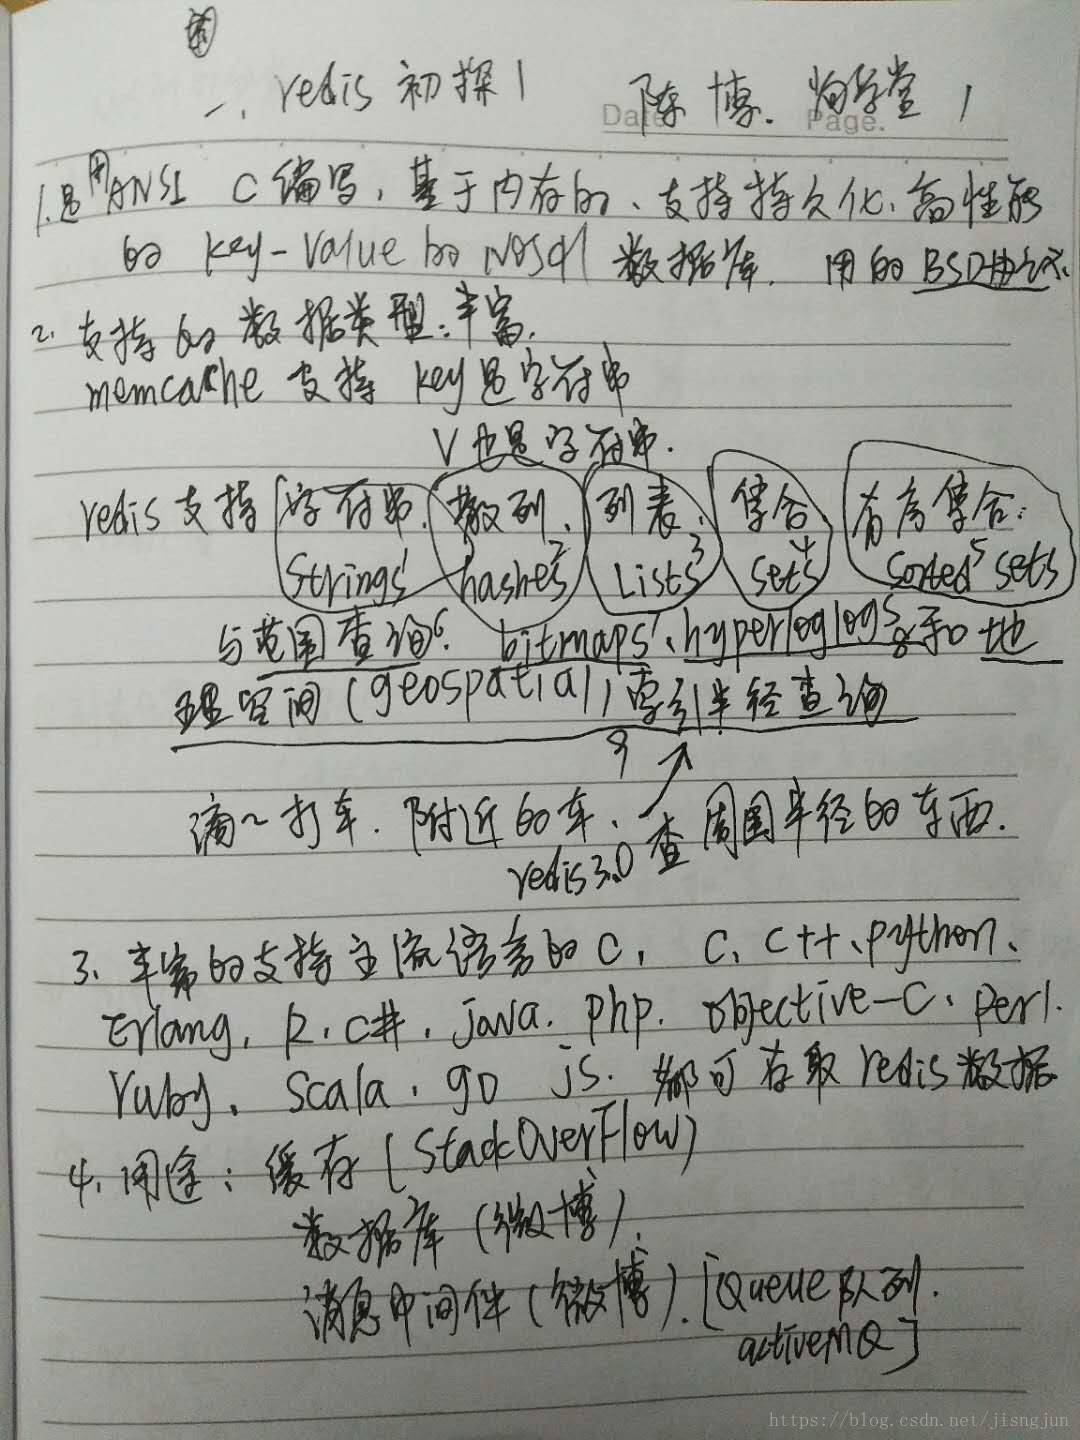 一、redis 初探1 陈博. 尚学堂 1
Date Page.
1.是用ANSI C编写、基于内存的、支持持久化、高性能
的 key-value的Nosql 数据库. 用的BSD协议.
2. 支持的数据类型:丰富.
memcache 支持 key是字符串
V也是字符串.
redis支持 字符串、散列、列表、集合 有序集合:
Strings1 hashes2 Lists3 sets4 sorted5 sets
与范围查询6. bitmaps7、hyperloglogs8和地
理空间(geospatial)索引半径查询
9
滴~打车. 附近的车、查周围半径的东西.
redis3.0
3、丰富的支持主流语言的C, C、C++、python、
Erlang, R、C#、java. php. objective-C、perl.
ruby、scala、go js. 都可存取redis数据
4、用途: 缓存(StackOverFlow)
数据库(微博)、
消息中间件(微博).[Queue队列.
activeMQ]
https://blog.csdn.net/jisngjun